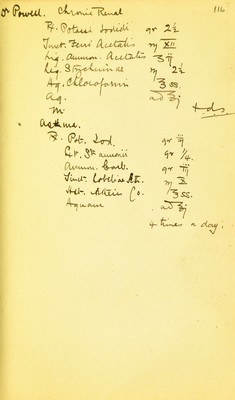 Dr Powell. Chronic Renal 116
℞. Potass Iodidi gr 2½
Tinct. Ferri Acetatis ♏ XII
Liq. Ammon. Acetatis ʒ ij
Liq. Strychninae ♏ 2½
Aq. Chloroformi ℥ ss.
Aq. ad ℥j
M. tds
Asthma.
℞. Pot. Iod. gr iij
Ext. Stramonii gr ¼.
Ammon. Carb. gr iij
Tinct. Lobeliae Aeth. ♏ X
Co. ℥ ss.
Aquam ad ℥j
4 times a day.